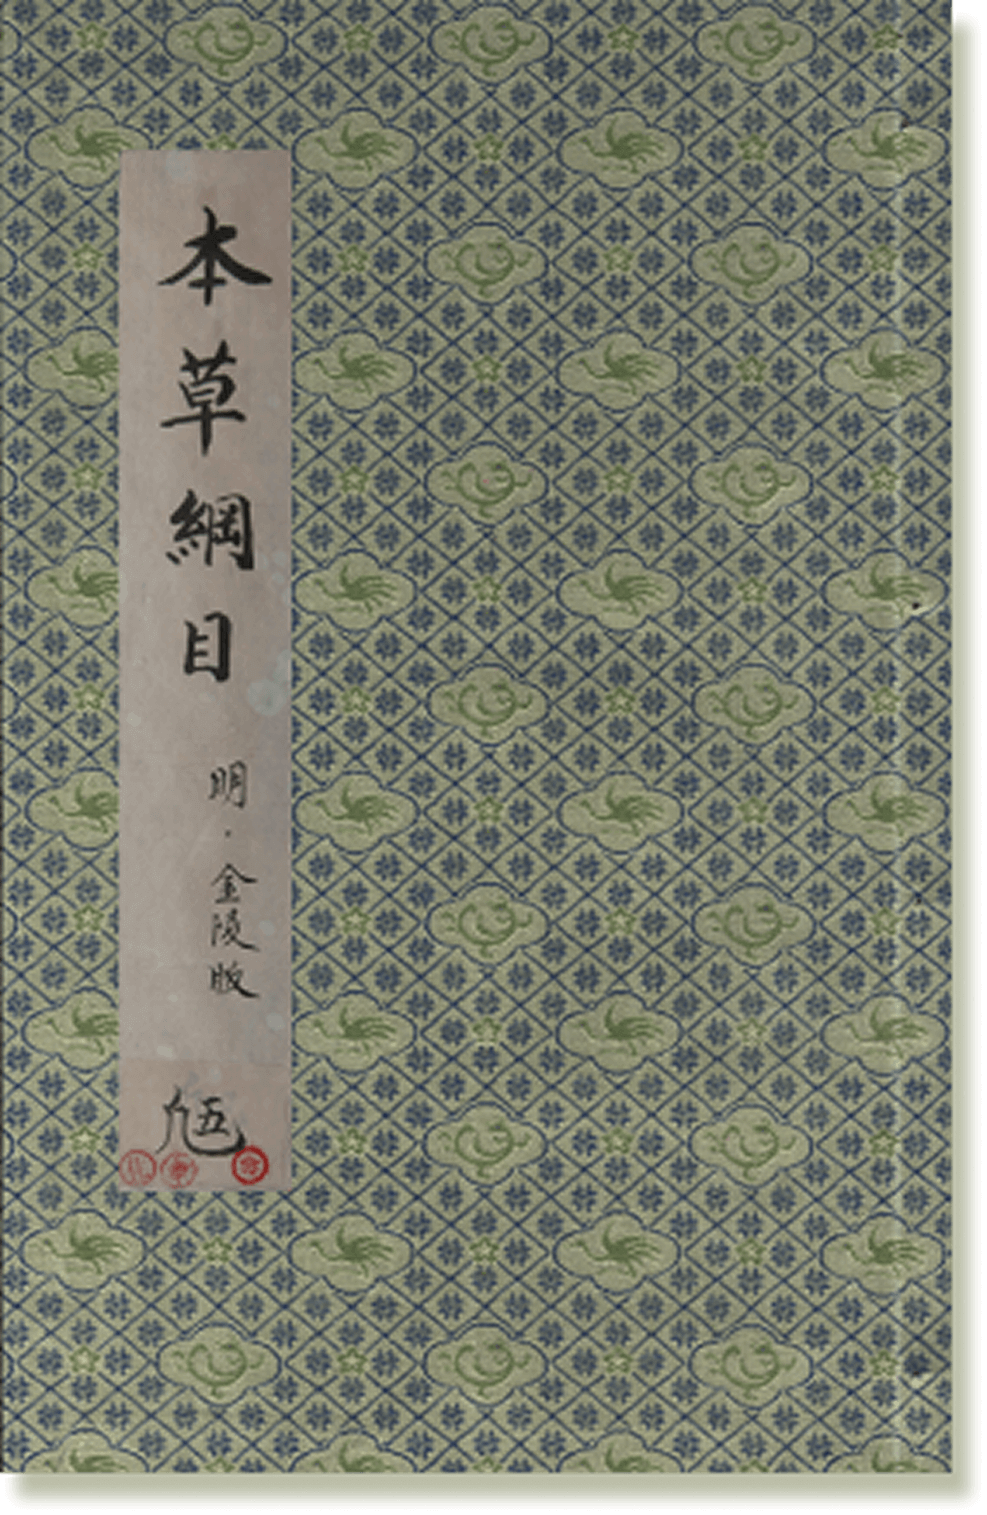 本草綱目
明·金陵版